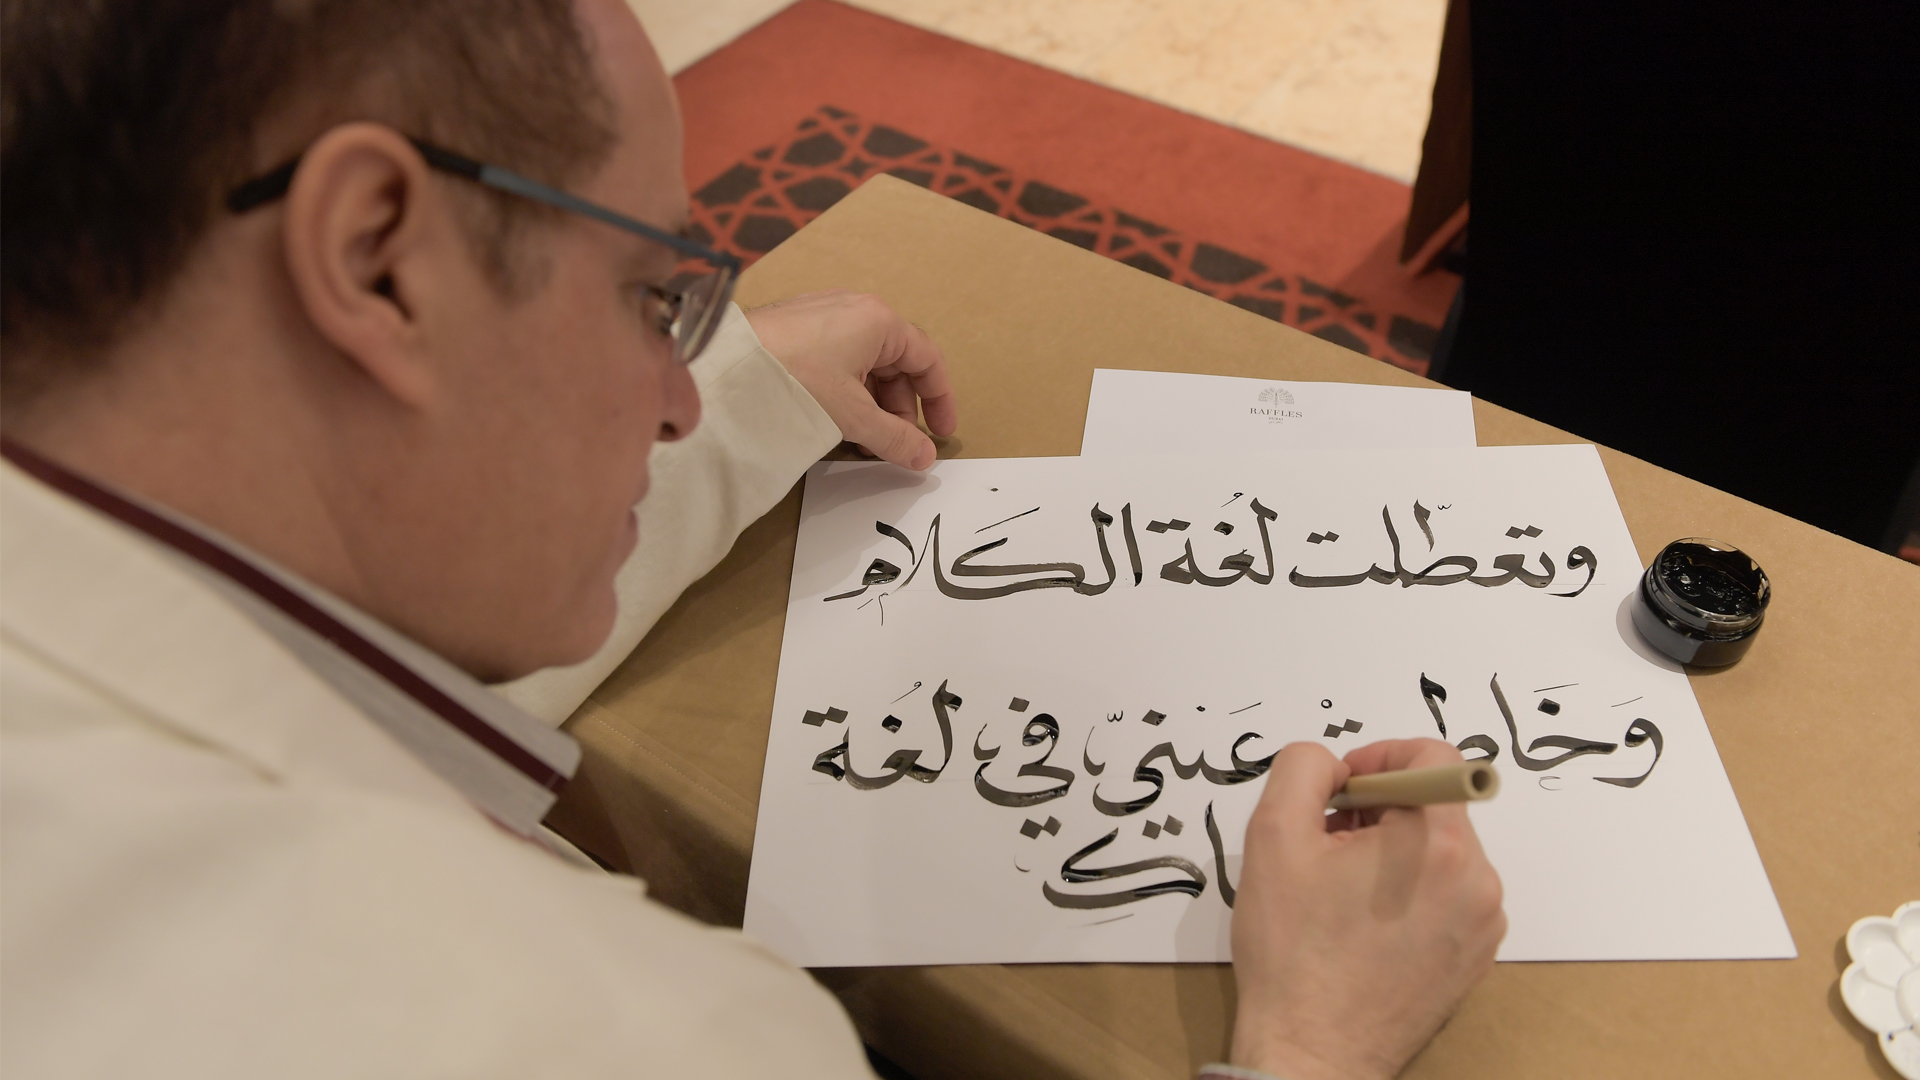 RAFFLES
DUBAI
وتعطّلت لُغة الكَلامِ
وَخَاطبتْ عَيْنيّ في لُغة